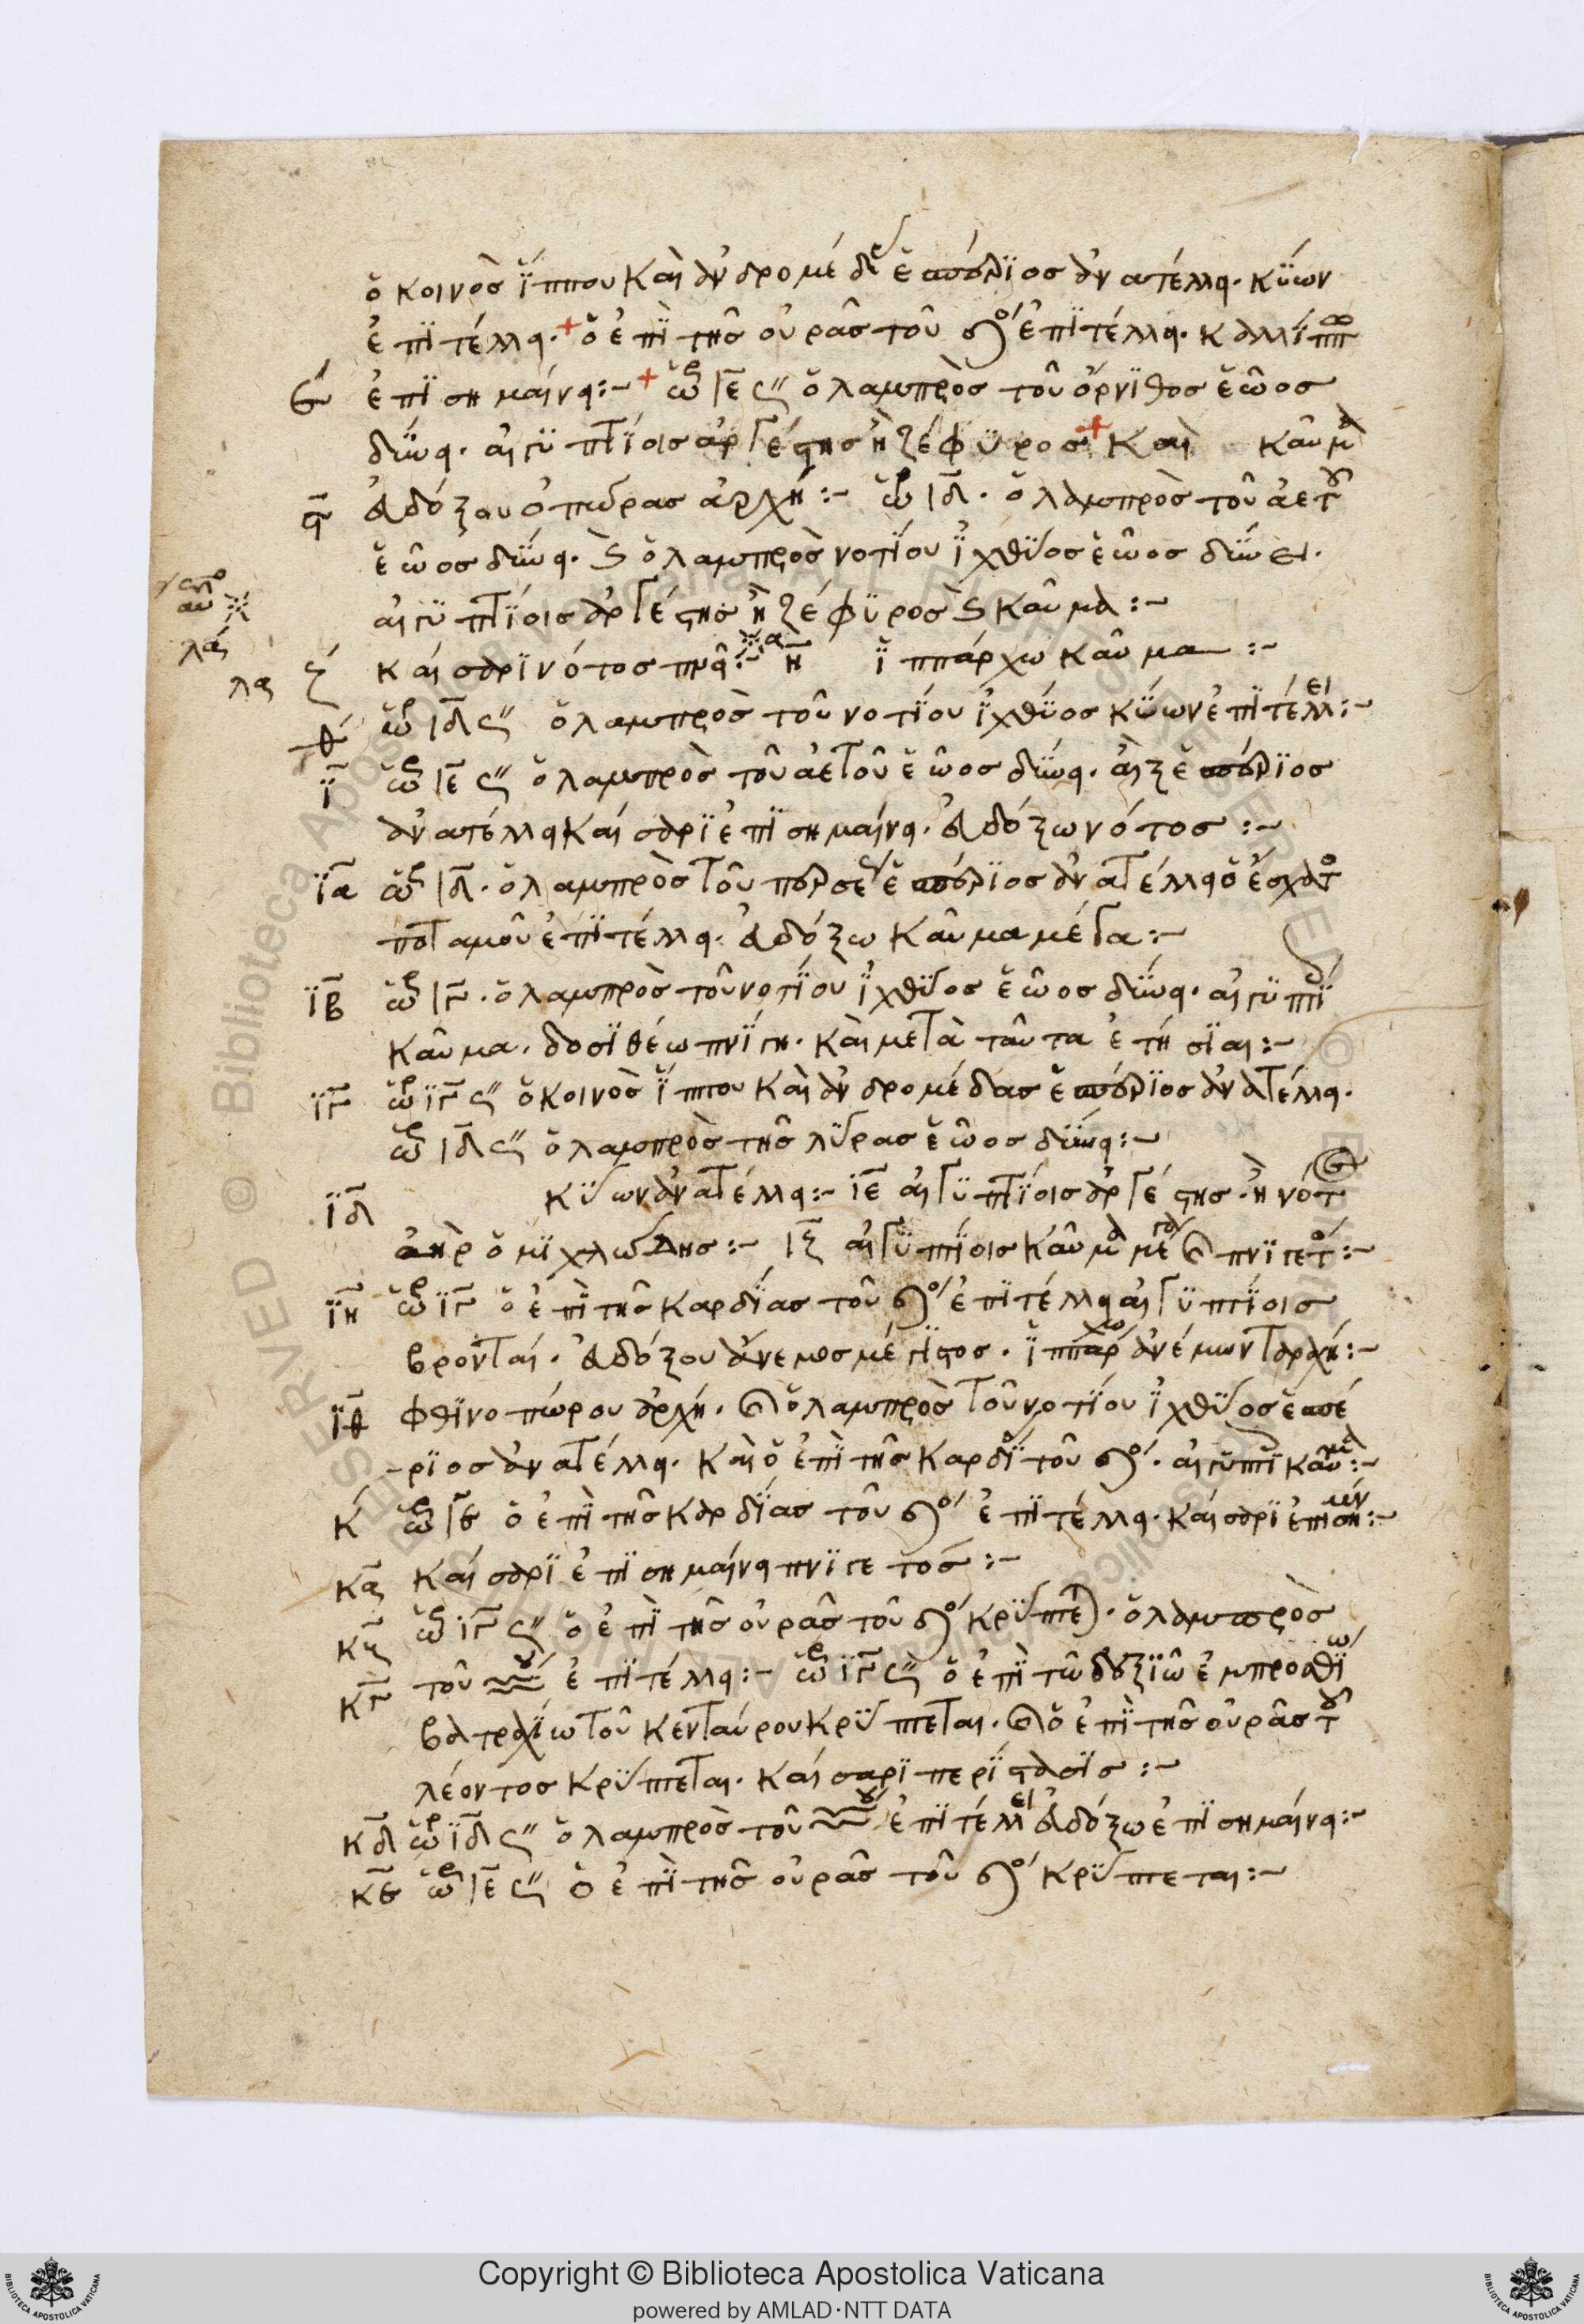 ὁ κοινὸς ἵππου καὶ ἀνδρομέδ ἑσπέριος ἀνατέλλει. κύων
ἐπιτέλλει. ὁ ἐπὶ τῆς οὐρᾶς τοῦ ἐπιτέλλει.
ἐπισημαίνει :- ὡρ ιε ὁ λαμπρὸς τοῦ ὄρνιθος ἑῶος
δύνει. αἰγυπτίοις ἀργέστης ἢ ζέφυρος καὶ καῦμα
εὐδόξου ὀπώρας ἀρχή :- ὡρ ιδ. ὁ λαμπρὸς τοῦ ἀετοῦ
ἑῶος δύνει. ὁ λαμπρὸς νοτίου ἰχθύος ἑῶος δύνει.
αἰγυπτίοις ἀργέστης ἢ ζέφυρος καῦμα :-
ζ καίσαρι νότος πνεῖ :- η ἱππάρχω καῦμα :-
θ ὡρ ιδ ὁ λαμπρὸς τοῦ νοτίου ἰχθύος κύων ἐπιτέλλει :-
ι ὡρ ιε ὁ λαμπρὸς τοῦ ἀετοῦ ἑῶος δύνει. αἲξ ἑσπέριος
ἀνατέλλει καίσαρι ἐπισημαίνει. εὐδόξω νότος :-
ια ὡρ ιδ. ὁ λαμπρὸς τοῦ περσέ ἑσπέριος ἀνατέλλει ὁ ἔσχατ
ποταμοῦ ἐπιτέλλει. εὐδόξω καῦμα μέγα :-
ιβ ὡρ ιγ. ὁ λαμπρὸς τοῦ νοτίου ἰχθύος ἑῶος δύνει. αἰγυπτί
καῦμα. δοσιθέω πνίγη. καὶ μετὰ ταῦτα ἐτησίαι :-
ιγ ὡρ ιγ ὁ κοινὸς ἵππου καὶ ἀνδρομέδας ἑσπέριος ἀνατέλλει.
ὡρ ιδ ὁ λαμπρὸς τῆς λύρας ἑῶος δύνει :-
ιδ κύων ἀνατέλλει :- ιε αἰγυπτίοις ἀργέστης. ἢ νότ
ἀὴρ ὁμιχλώδης :- ιζ αἰγυπτίοις καῦμα μέγα πνιγετ :-
ιη ὡρ ιγ ὁ ἐπὶ τῆς καρδίας τοῦ ἐπιτέλλει αἰγυπτίοις
βρονταί. εὐδόξου ἄνεμος μέγιστος. ἱππάρχω ἀνέμων ἀρχή :-
ιθ φθινοπώρου ἀρχή. ὁ λαμπρὸς τοῦ νοτίου ἰχθύος ἑσπέ
-ριος ἀνατέλλει. καὶ ὁ ἐπὶ τῆς καρδί τοῦ. αἰγυπτί καῦμα :-
κ ὡρ ὁ ἐπὶ τῆς καρδίας τοῦ ἐπιτέλλει. καίσαρι ἐπιση :-
κα καίσαρι ἐπισημαίνει πνιγετός :-
ὡρ ιγ ὁ ἐπὶ τῆς οὐρᾶς τοῦ κρύπτε. ὁ λαμπρὸς
κγ τοῦ ἐπιτέλλει :- ὡρ ιγ ὁ ἐπὶ τῶ δεξιῶ ἐμπροσθίω
βατραχίω τοῦ κενταύρου κρύπτεται. ὁ ἐπὶ τῆς οὐρᾶς τοῦ
λέοντος κρύπτεται. καίσαρι περίστασις :-
κδ ὡρ ιδ ὁ λαμπρὸς τοῦ ἐπιτέλλει εὐδόξω ἐπισημαίνει :-
κε ὡρ ιε ὁ ἐπὶ τῆς οὐρᾶς τοῦ κρύπτεται :-
Copyright © Biblioteca Apostolica Vaticana
powered by AMLAD·NTT DATA